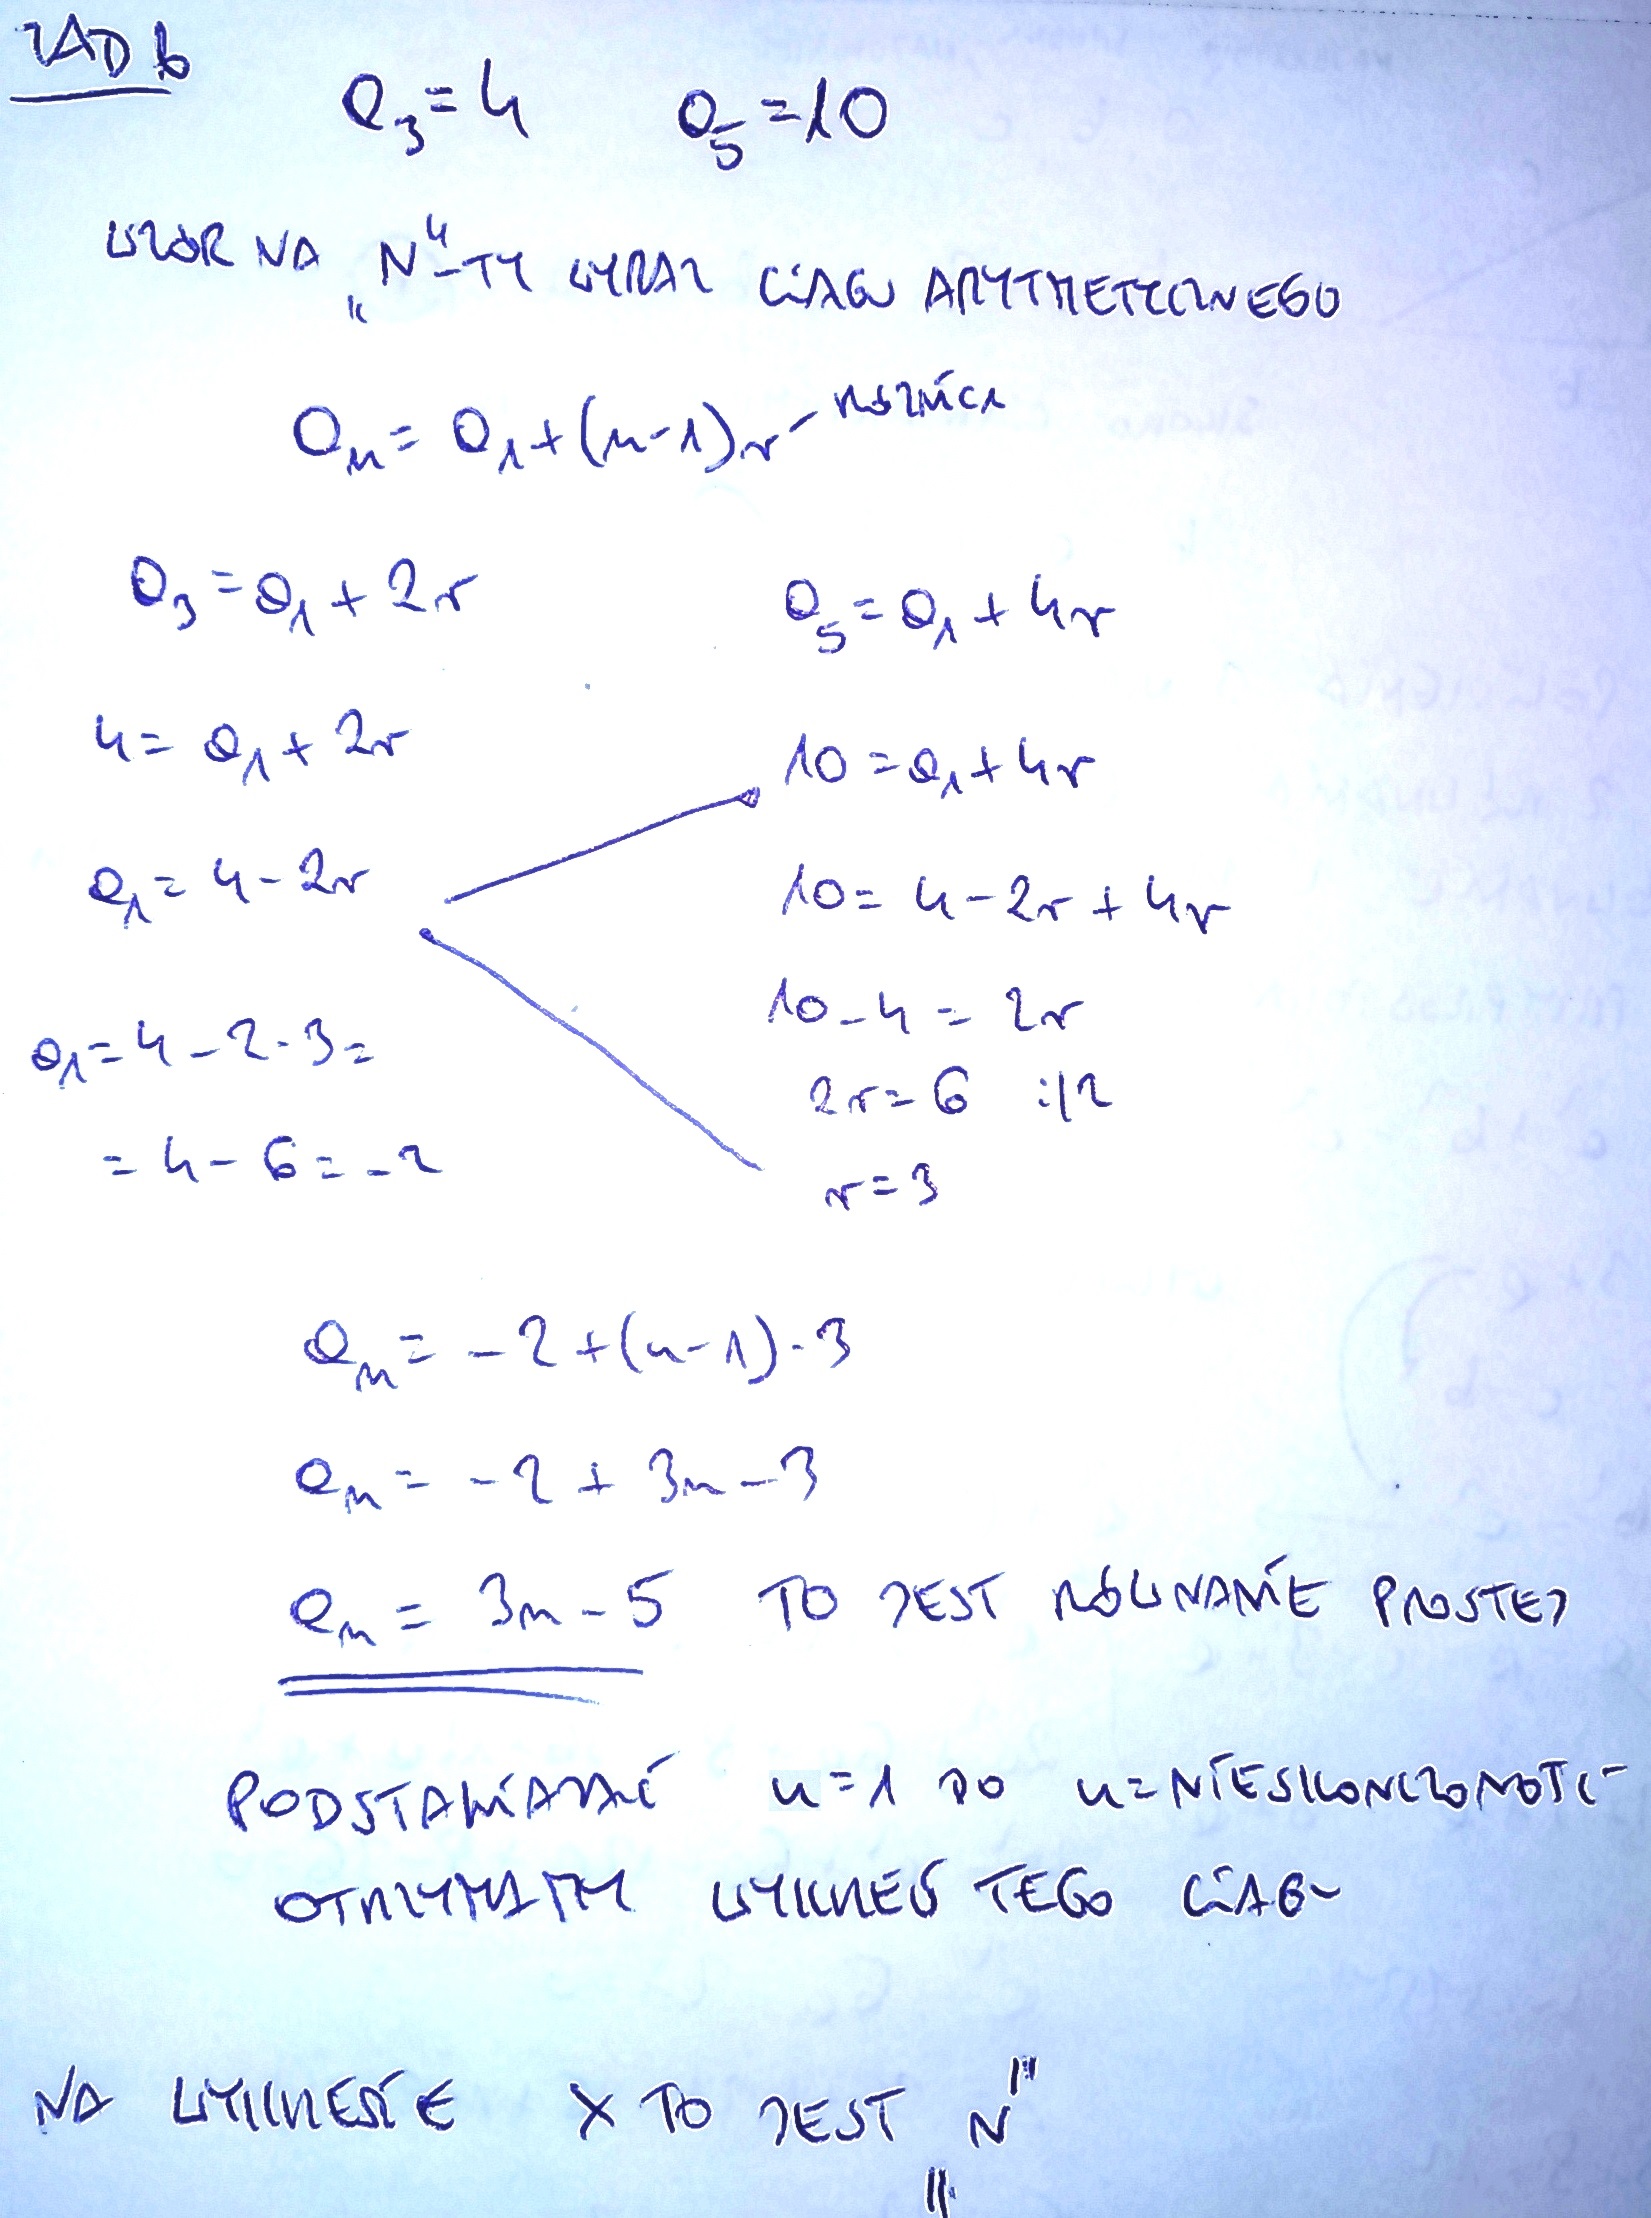 ZAD 6
a₃=4 a₅=10
WZÓR NA „N"-TY WYRAZ CIĄGU ARYTMETYCZNEGO
aₙ = a₁+(n-1)r różnica
a₃ = a₁ + 2r
a₅ = a₁ + 4r
4 = a₁ + 2r
10 = a₁ + 4r
a₁ = 4 - 2r
10 = 4 - 2r + 4r
10 - 4 = 2r
a₁ = 4 - 2·3 =
2r = 6 :|2
= 4 - 6 = -2
r = 3
aₙ = -2 + (n-1)·3
aₙ = -2 + 3n - 3
aₙ = 3n - 5 TO JEST RÓWNANIE PROSTEJ
PODSTAWIAJĄC n=1 DO n=NIESKONCZONOSCI
OTRZYMAMY WYKRES TEGO CIĄGU
NA WYKRESIE X TO JEST „N"